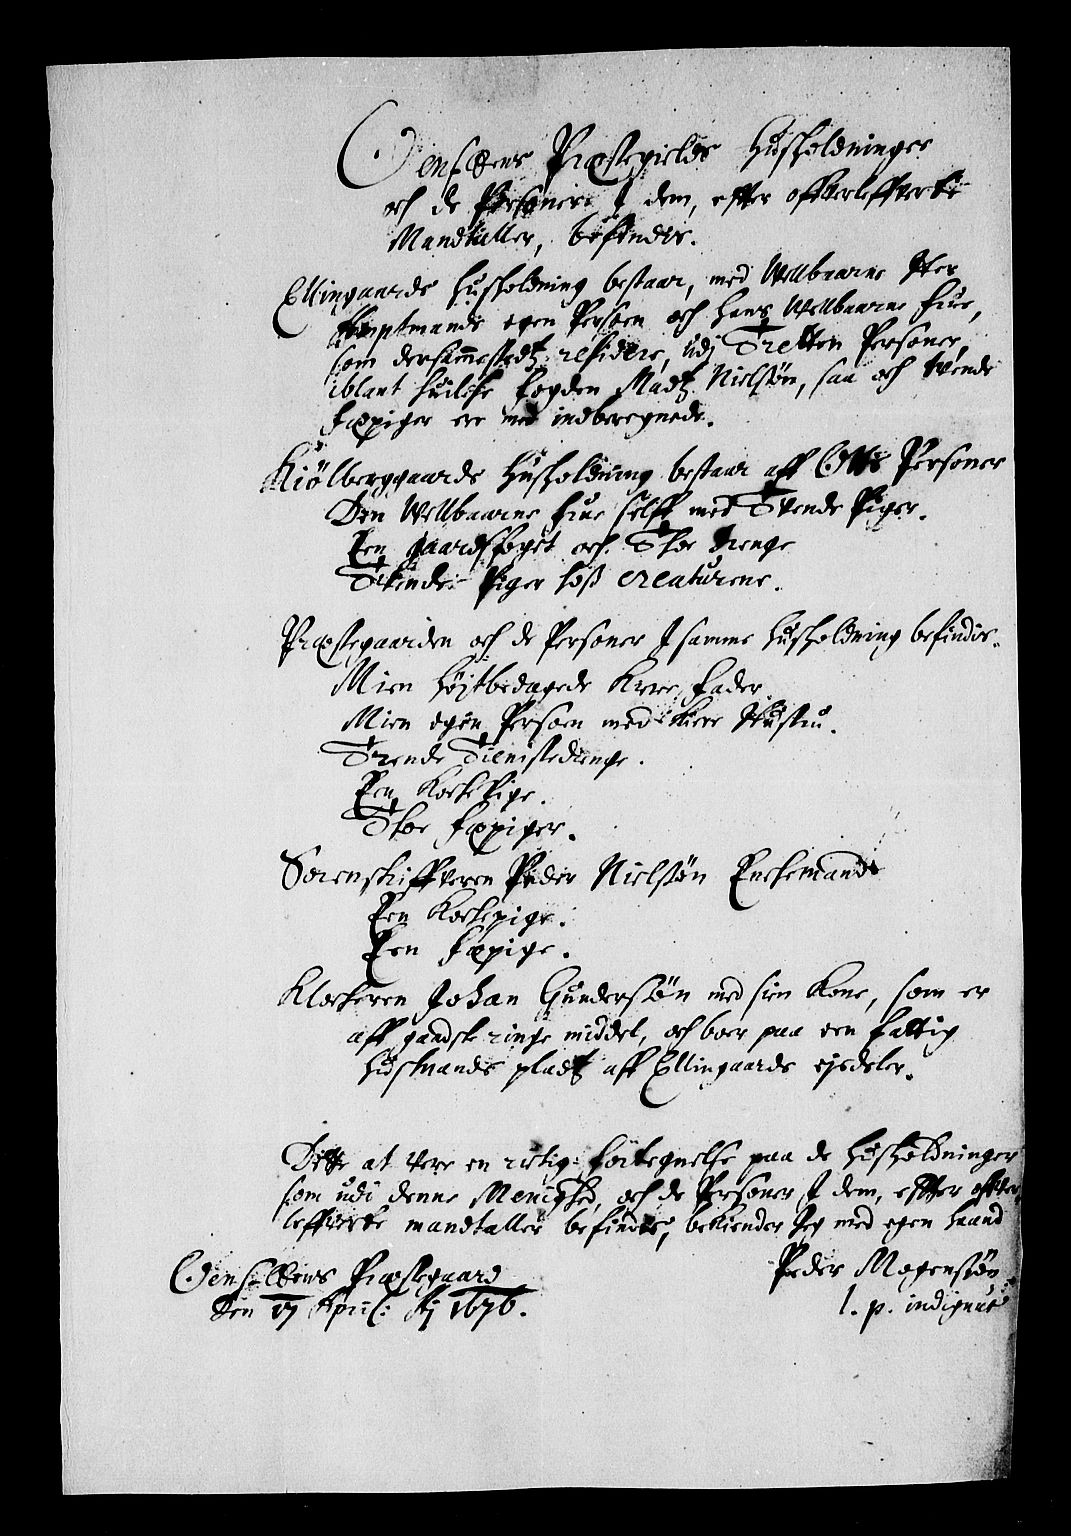 Oensøens Præstegields Huusholdninger
och de Persohner J dem, efter offverleffverte
Mandtaller, befindis.
Ellingaards Huusholdning bestaar, med Welbaarne Her
Amptmands egen Persoen och Hans Welbaarne Frue,
som dersammestedtz residere, udj Tretten Personer,
iblant huilche fogden Madtz Nielsøn, saa och tvende
fæpiger ere med indberegnede.
Kiölberggaards Huusholdning bestaar aff Otte Personer
Den Welbaarne Frue self med Tvende Piger.
Een gaardsfoget och Thoe drenge
Tvende Piger hoß creaturene.
Præstegaarden och de Personer J samme Huusholdning befindis.
Mien Højtbedagede Kiere Fader.
Mien egen Persoen med Kiere Hustru.
Trende Tienistedrenge.
Een Kockepige.
Thoe fæpiger.
Sorenskriffveren Peder Nielsøn Enckemand
Een Kockepige.
Een fæpige.
Klockeren Johan Gundersøn med sien Kone, som er
aff gandske ringe middel, och boer paa een fattig
Huusmands pladtz aff Ellingaards ejedeler.
Dette at vere en rictig fortegnelse paa de Huusholdninger
som udi denne Menighed, och de Personer J dem, effter offver
leffverte mandtaller befindes, bekiender Jeg med egen haand
Oensøens Præstegaard
Peder Mogensøn
Den 17 April: Aj 1676.
l. p. indignus